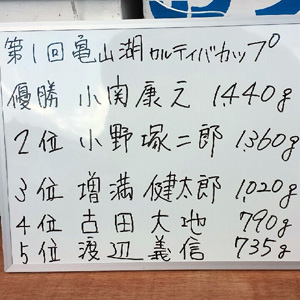 第1回亀山湖カルティバカップ
優勝 小関康元 1440g
2位 小野塚二郎 1,360g
3位 増満健太郎 1,020g
4位 古田大地 790g
5位 渡辺義信 735g